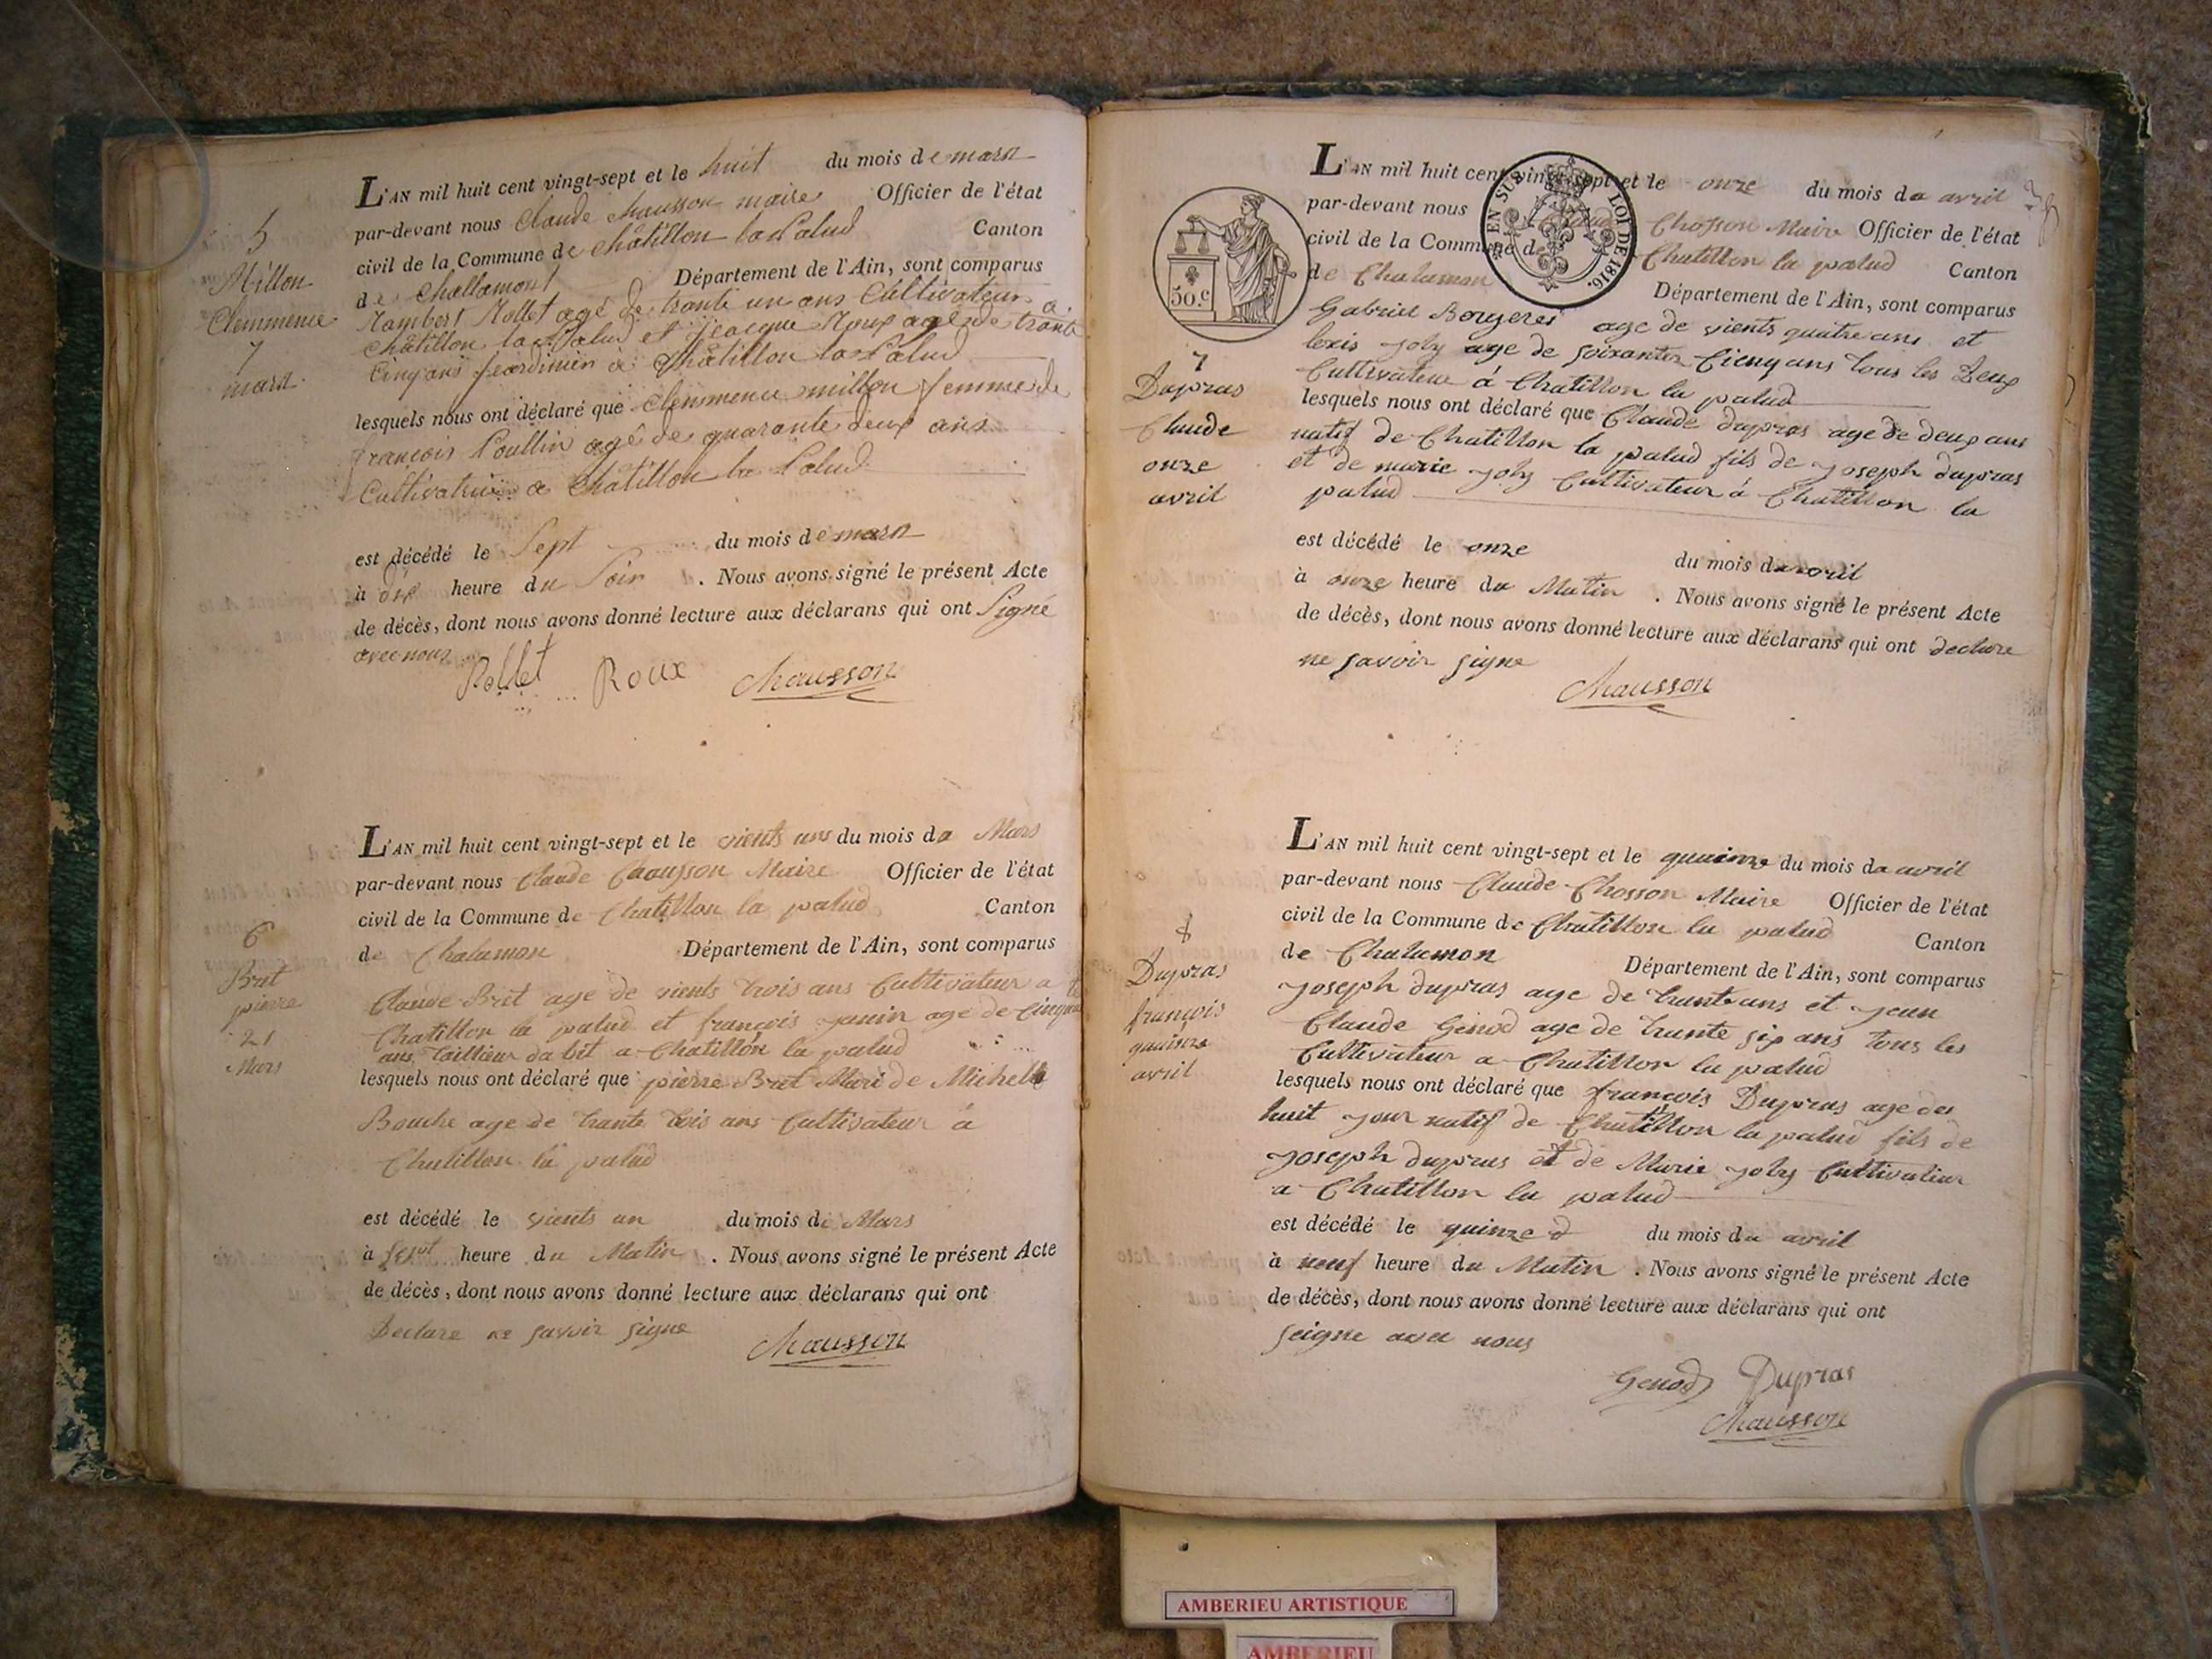 5
Millon
Clemmence
7
mars
L'AN mil huit cent vingt-sept et le huit du mois de mars
par-devant nous Claude Chausson maire Officier de l'état
civil de la Commune de Châtillon la Palud Canton
de Challamont Département de l'Ain, sont comparus
Rambert Rollet agé de trante un ans Cultivateur a
Châtillon la Palud et Jeacque Roux agé de trante
Cinq ans jeardinier à Châtillon la Palud
lesquels nous ont déclaré que Clemmence millon femme de
françois Poullin agé de quarante deux ans
Cultivatrice a Châtillon la Palud
est décédé le Sept du mois de mars
à dix heure du Soir. Nous avons signé le présent Acte
de décès, dont nous avons donné lecture aux déclarans qui ont Signé
avec nous
Rollet Roux Chausson
6
Bret
pierre
21
Mars
L'AN mil huit cent vingt-sept et le vients un du mois da Mars
par-devant nous Claude Chausson Maire Officier de l'état
civil de la Commune de Chatillon la palud Canton
de Chalamon Département de l'Ain, sont comparus
Claude Bret age de vients trois ans Cultivateur a
Chatillon la palud et françois janin age de Cinqua
ans taillieur da bit a Chatillon la palud
lesquels nous ont déclaré que pierre Bret Mari de Michelle
Bouche age de trante trois ans Cultivateur á
Chatillon la palud
est décédé le vients un du mois de Mars
à sept heure du Matin. Nous avons signé le présent Acte
de décès, dont nous avons donné lecture aux déclarans qui ont
Declare ne savoir signe
Chausson
50.c
EN SUS LOI DE 1816.
7
Dupras
Claude
onze
avril
L'AN mil huit cent vingt-sept et le onze du mois da avril
par-devant nous Claude Chosson Maire Officier de l'état
civil de la Commune de Chatillon la palud Canton
de Chalamon Département de l'Ain, sont comparus
Gabriel Bougeres age de vients quatre ans et
loüis joly age de soixante Cienq ans tous les deux
Cultivateur á Chatillon la palud
lesquels nous ont déclaré que Claude dupras age de deux ans
natif de Chatillon la palud fils de joseph dupras
et de marie joly Cultivateur á Chatillon la
palud
est décédé le onze du mois da avril
à onze heure du Matin. Nous avons signé le présent Acte
de décès, dont nous avons donné lecture aux déclarans qui ont declare
ne savoir signe
Chausson
8
Dupras
françois
quainze
avril
L'AN mil huit cent vingt-sept et le quainze du mois da avril
par-devant nous Claude Chosson Maire Officier de l'état
civil de la Commune de Chatillon la palud Canton
de Chalamon Département de l'Ain, sont comparus
joseph dupras age de trante ans et jean
Claude Genod age de trante six ans tous les
Cultivateur a Chatillon la palud
lesquels nous ont déclaré que françois Dupras age des
huit jour natif de Chatillon la palud fils de
joseph dupras et de Marie joly Cultivateur
a Chatillon la palud
est décédé le quinze d du mois da avril
à neuf heure du Matin. Nous avons signé le présent Acte
de décès, dont nous avons donné lecture aux déclarans qui ont
seigne avec nous
Genod Dupras
Chausson
AMBERIEU ARTISTIQUE
AMBERIEU